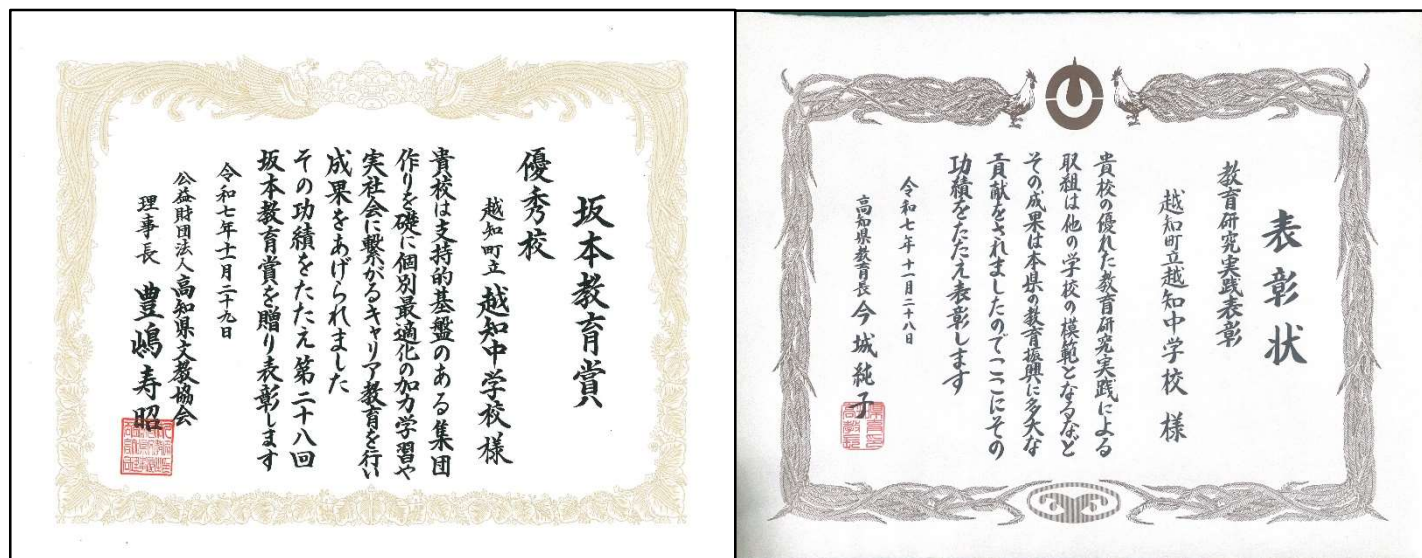 坂本教育賞
優秀校
越知町立 越知中学校 様
貴校は支持的基盤のある集団
作りを礎に個別最適化の加力学習や
実社会に繋がるキャリア教育を行い
成果をあげられました
その功績をたたえ第二十八回
坂本教育賞を贈り表彰します
令和七年十一月二十九日
公益財団法人高知県文教協会
理事長 豊嶋寿昭
表彰状
教育研究実践表彰
越知町立越知中学校 様
貴校の優れた教育研究実践による
取組は他の学校の模範となるなど
その成果は本県の教育振興に多大な
貢献をされましたのでここにその
功績をたたえ表彰します
令和七年十一月二十八日
高知県教育長 今城純子